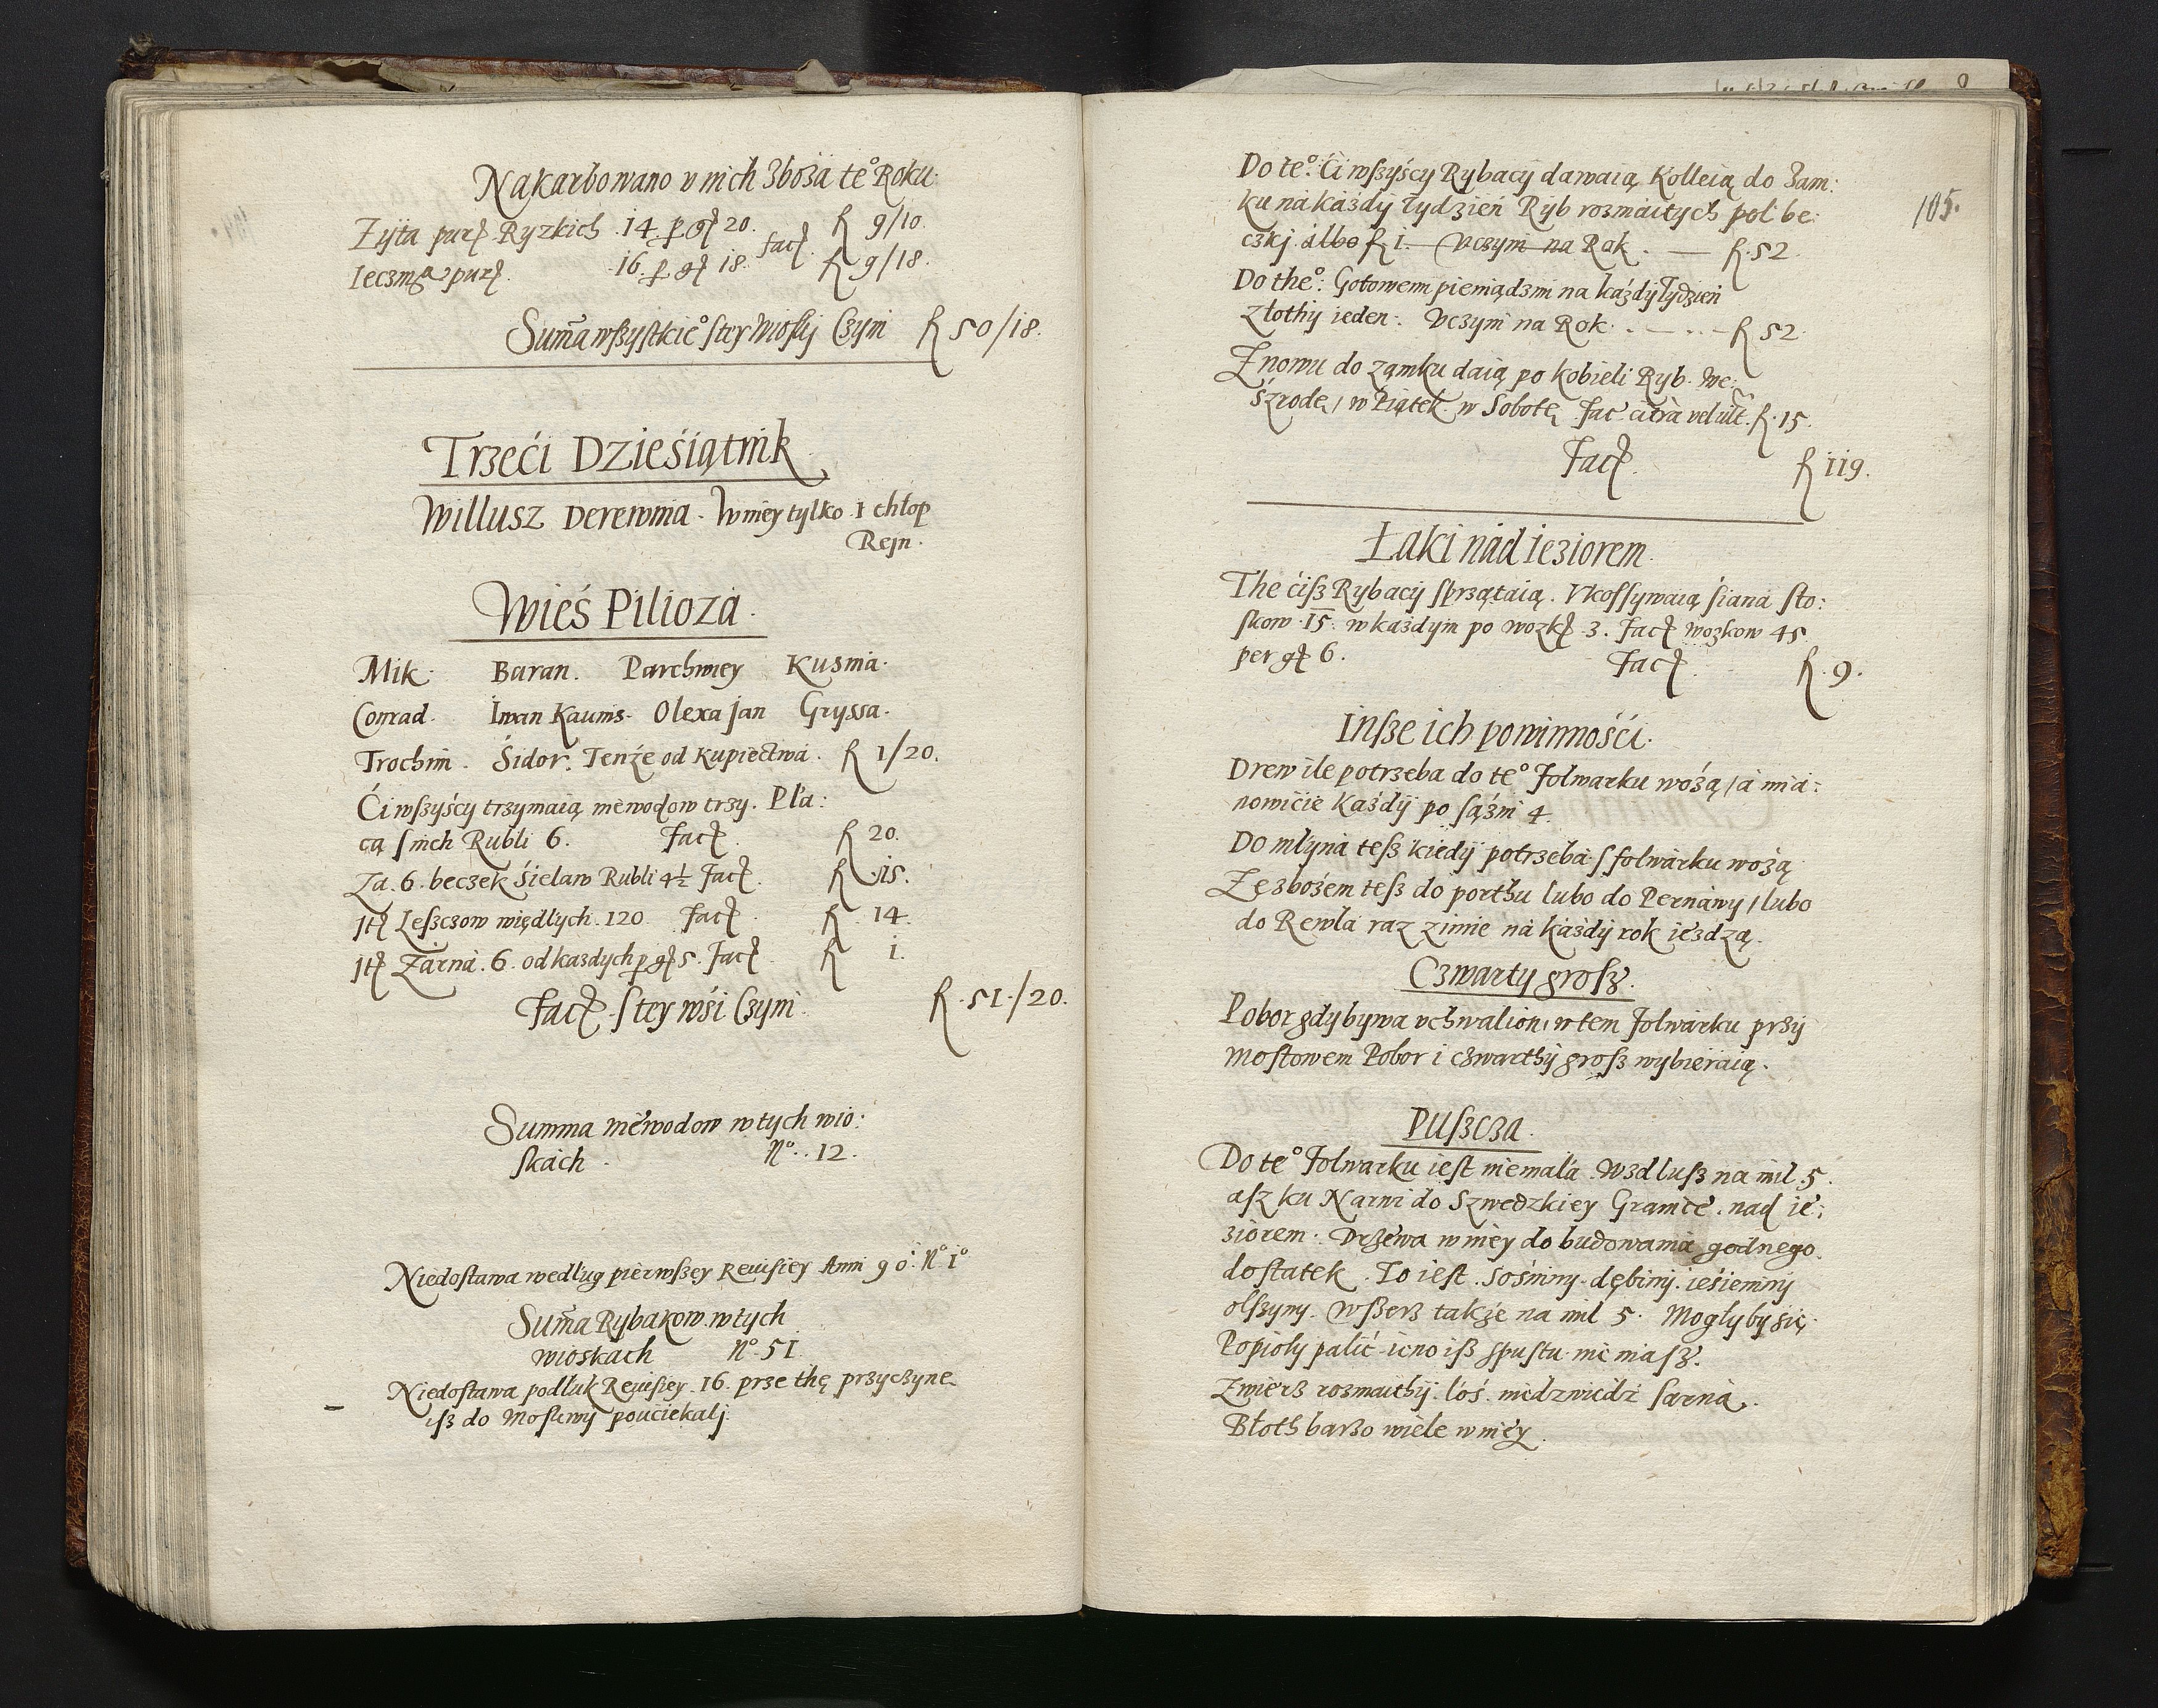 Nakarbowano v nich Zboża te° Roku.
Zÿta pur. Ryzkich 14 p. g. 20. fl 9/10.
facit
Ieczmię. pur. 16. p. g. 18. fl 9/18.
Sum̃a wszystkie° s tey wiosky Czyni fl 50/18.
Trzeći Dzieśiątnik
Willusz Derewnia. W niey tylko 1 chłop
Rejn.
Wieś Pilioza.
Mik. Baran. Parchmey Kusma.
Conrad. Iwan Kaunis. Olexa Jan Gryssa.
Trochim. Śidor. Tenże od Kupiectwa. fl 1/20.
Ći wszyśćy trzymaią niewodow trzy. Pła:
cą s nich Rubli 6. facit fl 20.
Za. 6. beczek Śielaw Rubli 4½ facit. fl 15.
Itē Leszczow więdłych. 120 facit. fl 14.
Itē Żarna. 6. od każdych p g. 5. facit fl 1.
Facit s tey wśi Czyni fl. 51./20.
Summa niewodow w tych wio:
skach. N°. 12.
Niedostawa według pierwszey Reuisiey Anni 90. N° 1°
Sum̃a Rybakow w tych
wioskach N° 51.
Niedostawa podłuk Reuisiey. 16. prze thę przyczynę
isz do Moskwy pouciekaly.
105.
Do te°. Ći wszyśćy Rybacÿ dawaią Kolleią do Zam:
ku na każdy tydzień Ryb rozmaitych pol be:
czkj. albo fl 1. Vczyni na Rok. fl. 52.
Do the°: Gotowemi pieniądzmi na każdÿ Tydzień
złothy ieden. Vczyni na Rok. fl 52.
Znowu do zamku daią po kobieli Ryb. We:
śzrodę, w Piątek. w Sobotę fac citra vel ult. fl. 15.
Facit. fl 119.
Łaki nad ieziorem.
The ćisz Rybacÿ sprzątaią. Vkossywaią śiana sto:
skow. 15. w każdym po wozk. 3. facit wozkow 45
per g. 6. Facit. fl. 9.
Insze ich powinnośći.
Drew ile potrzeba do te° folwarku wożą, a mia:
nowićie każdÿ po sążni 4.
Do młyna tesz kiedÿ potrzeba s folwarku wożą
Ze zbożem tesz do porthu lubo do Pernawy, lubo
do Rewla raz zimie na każdÿ rok ieżdżą.
Czwarty grosz.
Pobor gdy bywa vchwalion, w tem folwarku przÿ
mostowem Pobor i czwarthÿ grosz wybieraią.
Puszcza.
Do te° folwarku iest niemała. Wzdłusz na mil. 5.
asz ku Narwi do Szwedzkiey Granice. nad ie:
ziorem. Drzewa w niey do budowania godnego
dostatek. To iest. Sośniny. dębiny. ieśieniny
olszyny. wszerz także na mil 5. Mogły by się
Popioły palić ieno isz spustu niemasz.
Zwierz rozmaithÿ. łoś. niedzwiedź sarna.
Błoth barzo wiele w niey.